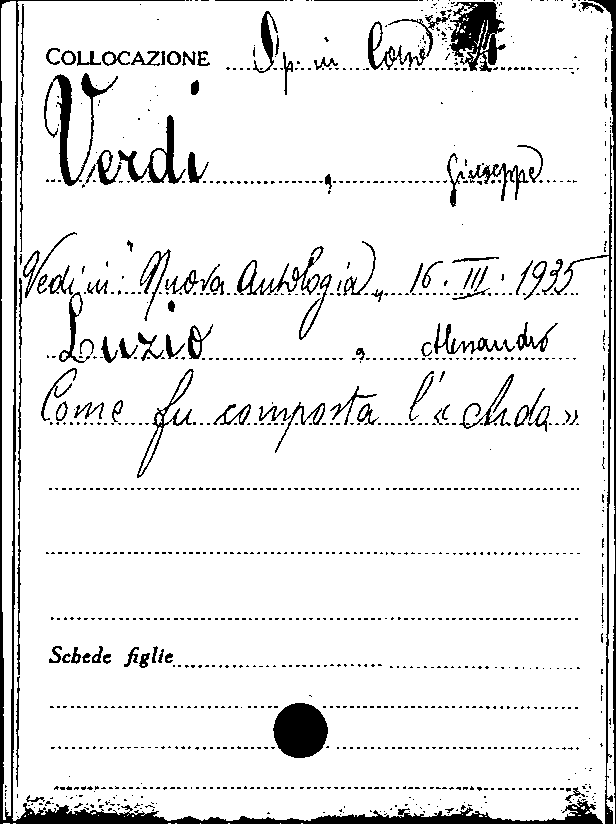 COLLOCAZIONE Op. in Cons A
Verdi, Giuseppe
Vedi in: "Nuova Antologia„ 16. III. 1935
Luzio, Alessandro
Come fu composta l'«Aida»
Schede figlie